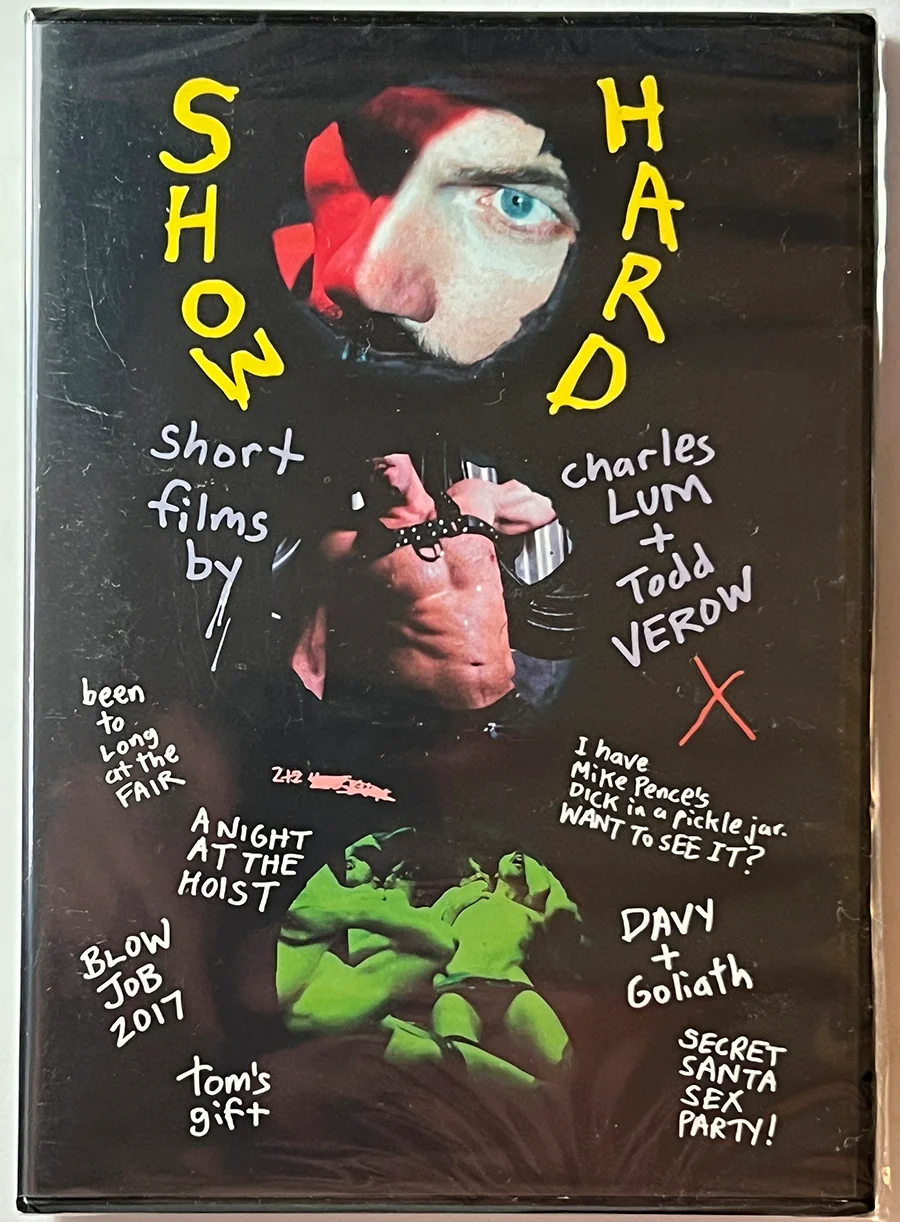 SHOW
HARD
short
films
by
charles
LUM
+
Todd
VEROW
X
been
to
Long
at the
FAIR
212
I have
Mike Pence's
DICK in a pickle jar.
WANT TO SEE IT?
A NIGHT
AT THE
HOIST
DAVY
+
Goliath
BLOW
JOB
2017
tom's
gift
SECRET
SANTA
SEX
PARTY!